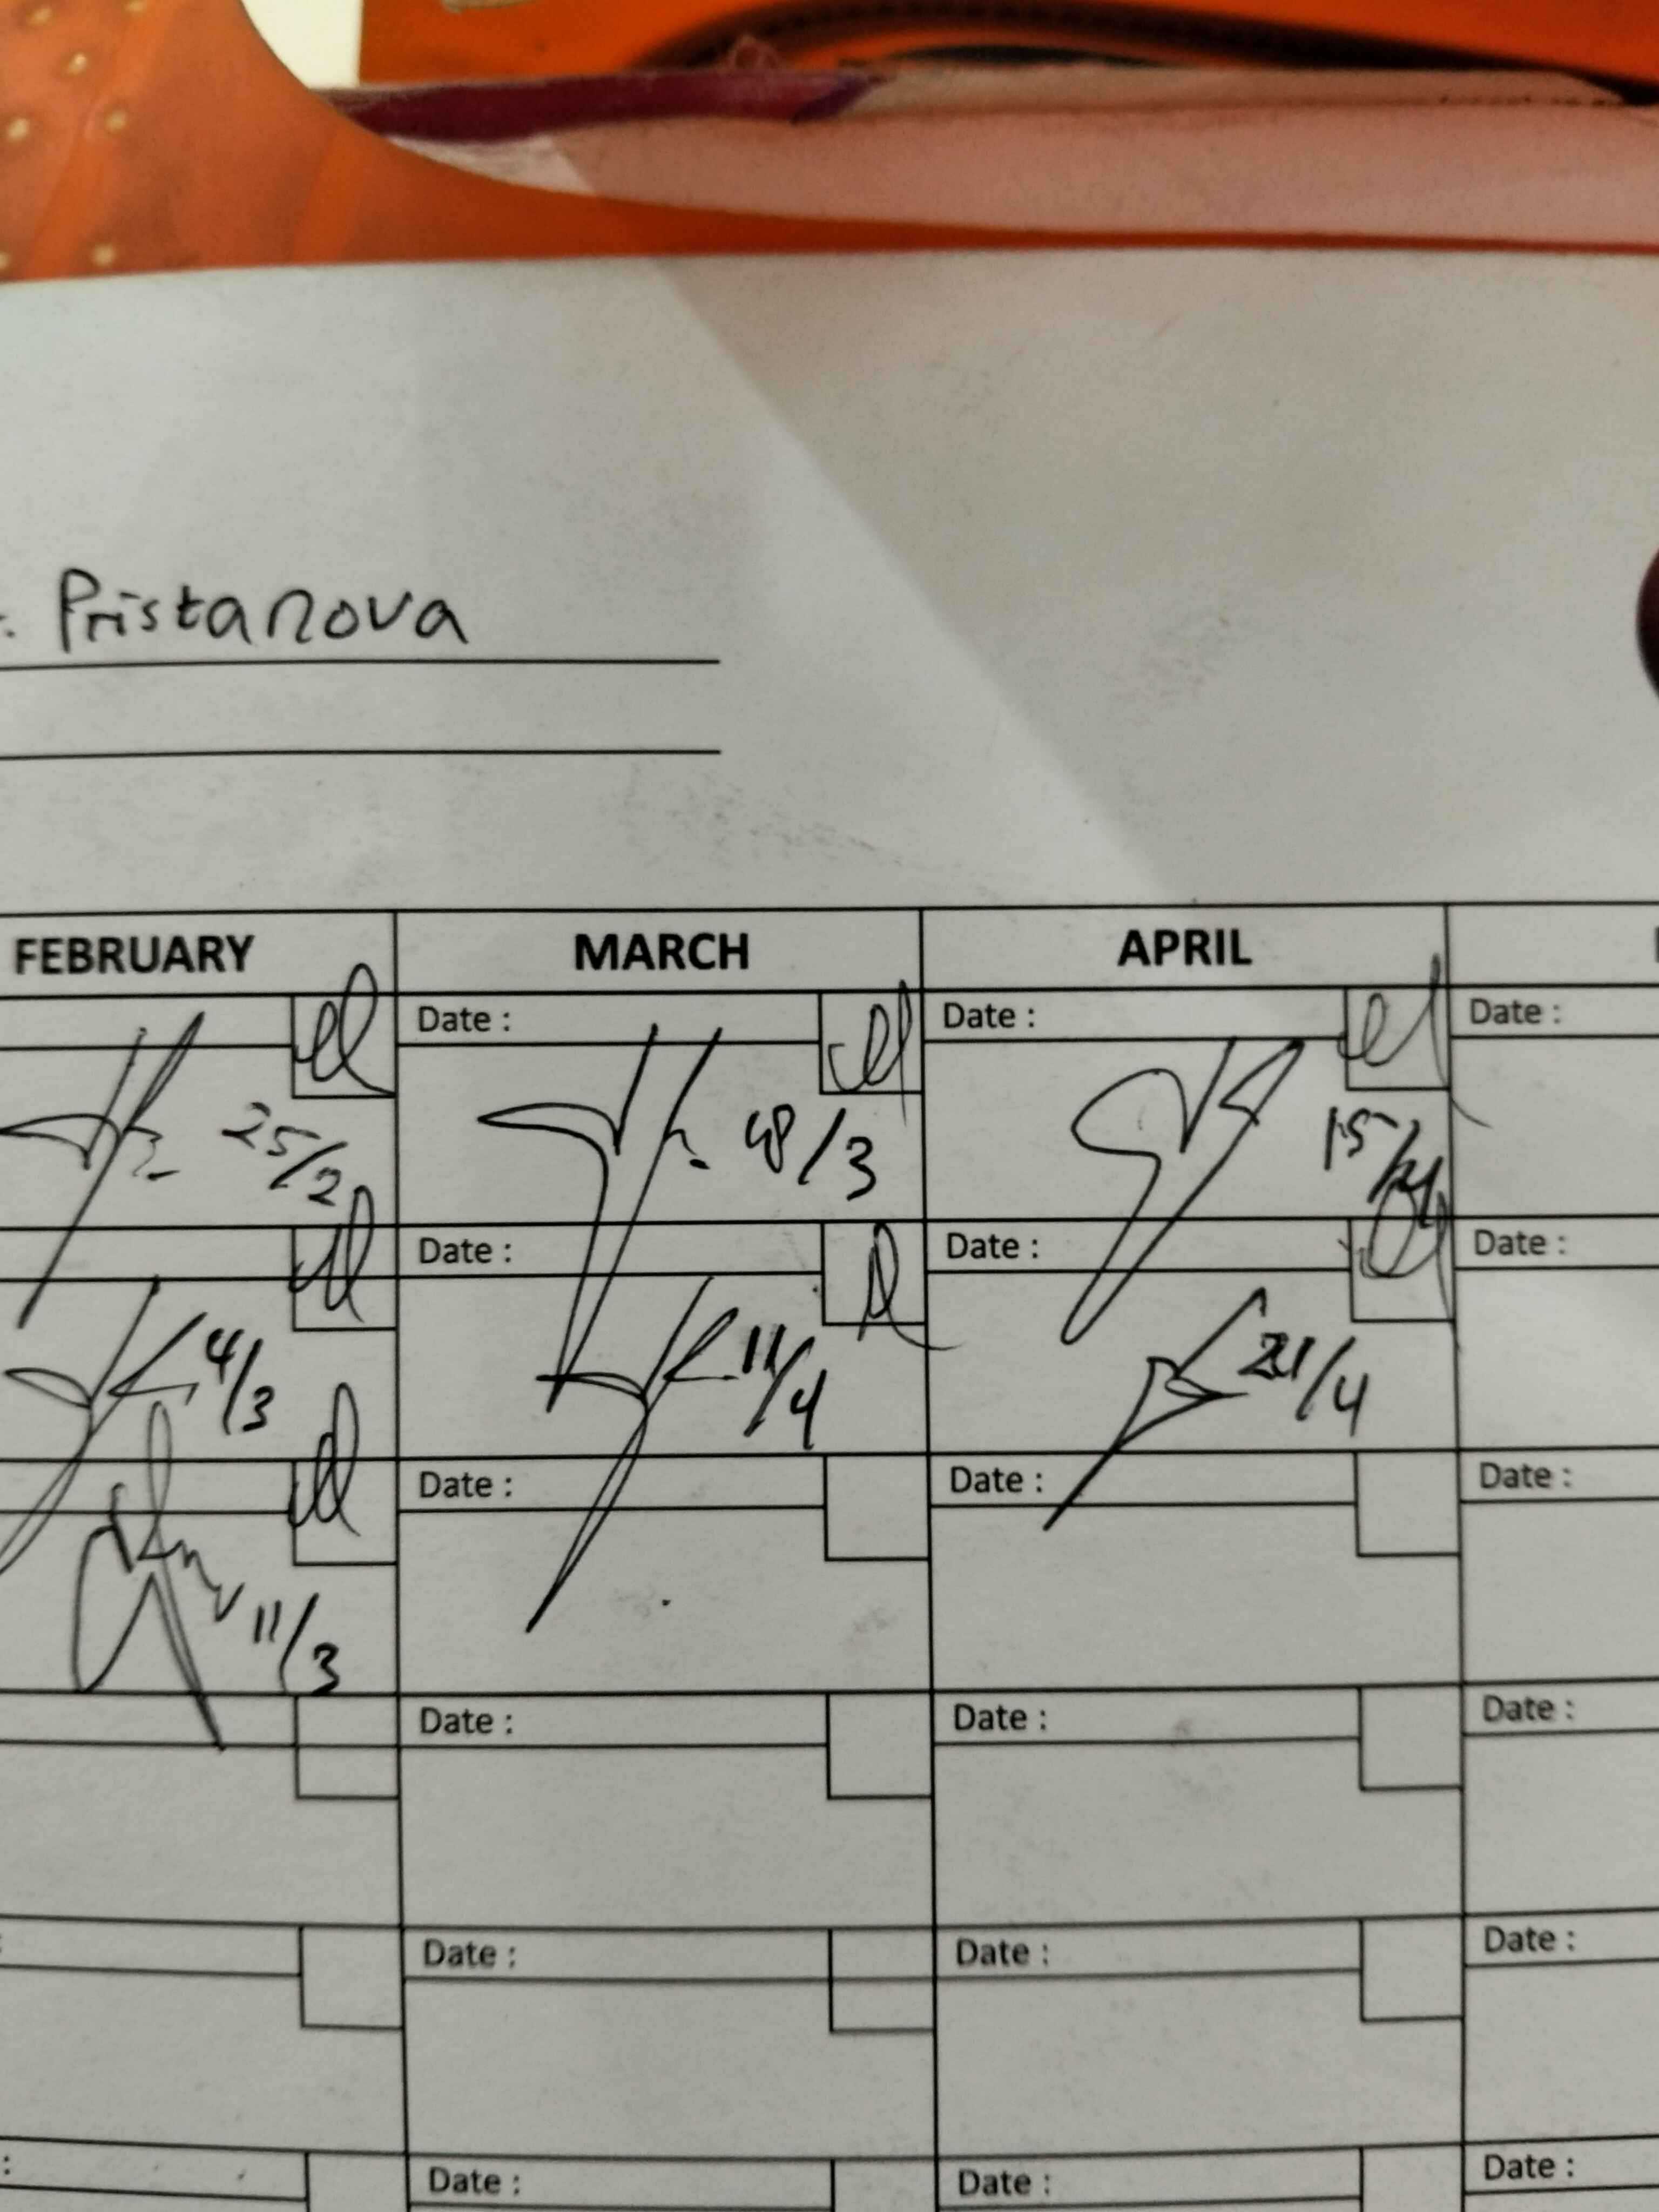 Pristanova
FEBRUARY MARCH APRIL
Date : Date : Date :
25/2 18/3 15/4
Date : Date : Date :
4/3 11/4 21/4
Date : Date : Date :
11/3
Date : Date : Date :
Date : Date : Date :
Date : Date : Date :